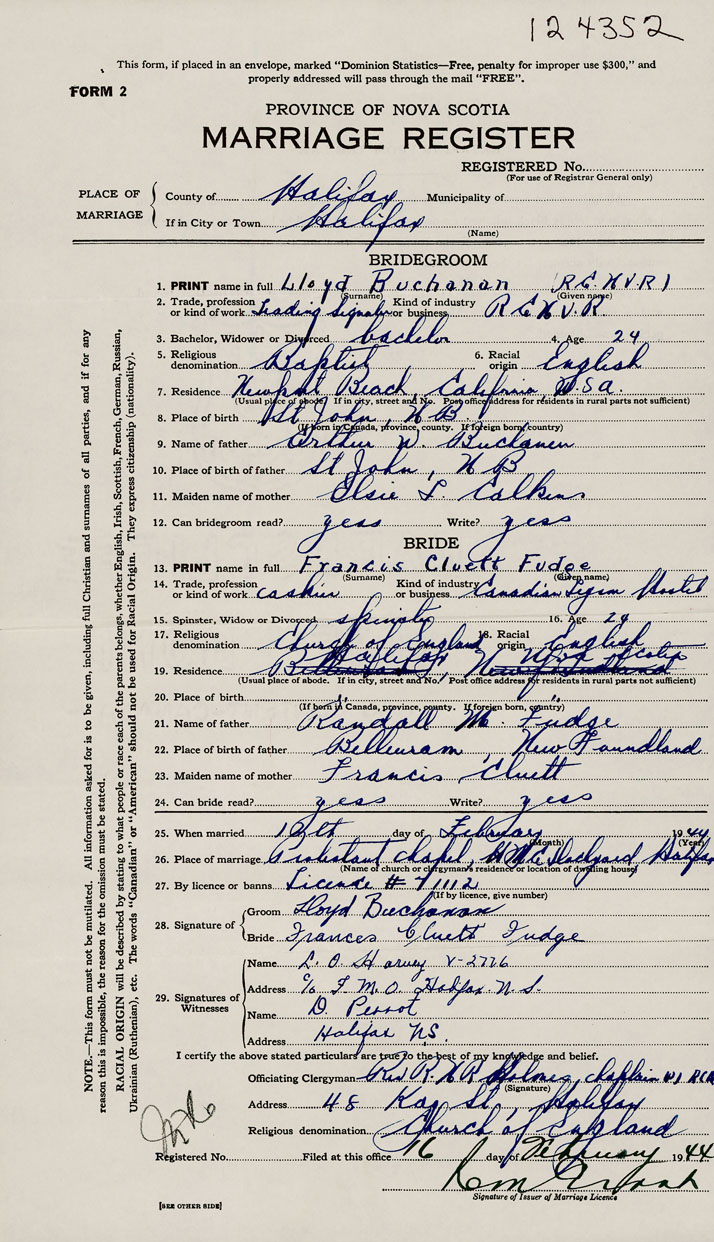 124352
This form, if placed in an envelope, marked "Dominion Statistics—Free, penalty for improper use $300," and
properly addressed will pass through the mail "FREE".
FORM 2
PROVINCE OF NOVA SCOTIA
MARRIAGE REGISTER
REGISTERED No.
(For use of Registrar General only)
PLACE OF MARRIAGE
County of Halifax Municipality of
If in City or Town Halifax
(Name)
BRIDEGROOM
1. PRINT name in full Lloyd Buchanan (R.C.N.V.R)
(Surname) (Given name)
2. Trade, profession or kind of work Leading Signaler Kind of industry or business R.C.N.V.R.
3. Bachelor, Widower or Divorced bachelor 4. Age 24
5. Religious denomination Baptist 6. Racial origin English
7. Residence Newport Beach, California, U.S.A.
(Usual place of abode. If in city, street and No. Post office address for residents in rural parts not sufficient)
8. Place of birth St John, N.B.
(If born in Canada, province, county. If foreign born, country)
9. Name of father Arthur W. Buchanan
10. Place of birth of father St John, N B
11. Maiden name of mother Elsie L. Calkins
12. Can bridegroom read? yess Write? yess
BRIDE
13. PRINT name in full Francis Cluett Fudge
(Surname) (Given name)
14. Trade, profession or kind of work cashier Kind of industry or business Canadian Legion Hostel
15. Spinster, Widow or Divorced spinster 16. Age 24
17. Religious denomination Church of England 18. Racial origin English
19. Residence Halifax, Nova Scotia
(Usual place of abode. If in city, street and No. Post office address for residents in rural parts not sufficient)
20. Place of birth
(If born in Canada, province, county. If foreign born, country)
21. Name of father Randall M. Fudge
22. Place of birth of father Belleuram, New Foundland
23. Maiden name of mother Francis Cluett
24. Can bride read? yess Write? yess
25. When married 12th day of February 1944
(Month) (Year)
26. Place of marriage Protestant chapel, HMC Dockyard Halifax
(Name of church or clergyman's residence or location of dwelling house)
27. By licence or banns Licence # 71112
(If by licence, give number)
28. Signature of
Groom Lloyd Buchanan
Bride Frances Cluett Fudge
29. Signatures of Witnesses
Name L. O. Harvey V-2776
Address c/o F.M.O. Halifax N.S.
Name D. Perrot
Address Halifax NS.
I certify the above stated particulars are true to the best of my knowledge and belief.
Officiating Clergyman Rev R. H. P. Holmes, chaplain
(Signature)
Address 48 Kay St, Halifax
Religious denomination Church of England
Registered No. Filed at this office 16 day of February 1944
Signature of Issuer of Marriage Licence
[SEE OTHER SIDE]
NOTE.—This form must not be mutilated. All information asked for is to be given, including full Christian and surnames of all parties, and if for any
reason this is impossible, the reason for the omission must be stated.
RACIAL ORIGIN will be described by stating to what people or race each of the parents belongs, whether English, Irish, Scottish, French, German, Russian,
Ukrainian (Ruthenian), etc. The words "Canadian" or "American" should not be used for Racial Origin. They express citizenship (nationality).